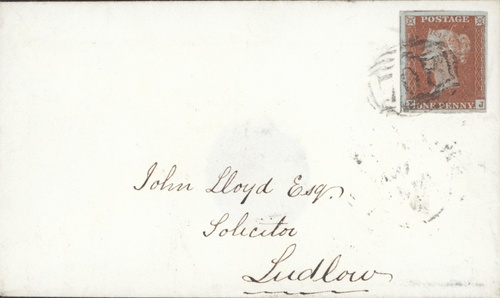 POSTAGE
ONE PENNY
J
John Lloyd Esq.
Solicitor
Ludlow